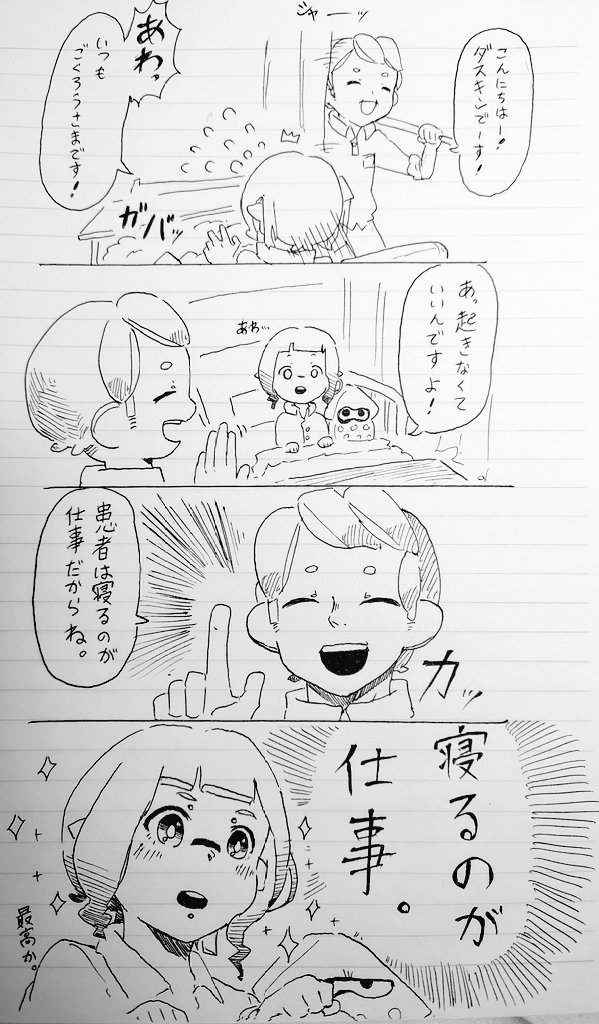 ジャーッ
こんにちはー!
ダスキンでーす!
あわっ
いつも
ごくろうさまです!
ガバッ
あっ起きなくて
いいんですよ!
あわ…
患者は寝るのが
仕事だからね。
カッ
寝るのが
仕事。
最高か。